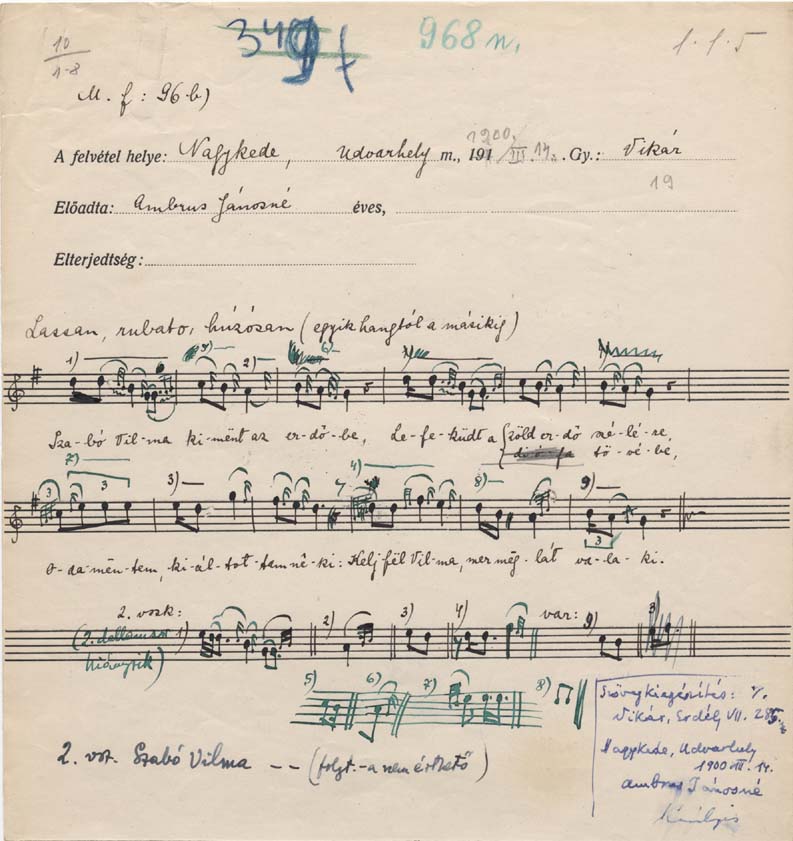 10
1-8
349
968 n.
1-1-5
M. f: 96 b)
A felvétel helye: Nagykede, Udvarhely m., 191 1900. III. 14. Gy.: Vikár
19
Előadta: Ambrus Jánosné éves,
Elterjedtség:
Lassan, rubato, húzósan (egyik hangtól a másikig)
1) 2)
Sza-bó Vil-ma ki-mënt az er-dő-be, Le-fe-küdt a zöld er-dő szé-lé-re,
di-ó-fa tö-vé-be,
7) 3) 4) 8) 9)
3 3 3
O-da-mën-tem, ki-ál-tot-tam nê-ki: Kelj fël Vil-ma, mer mëg-lát va-la-ki.
3
2. vszk: 1) 2) 3) 4) var: 9)
(2. dallamsor
hiányzik)
5) 6) 7) 8)
2. vsz. Szabó Vilma -- (folyt.-a nem érthető)
Szövegkiegészítés: V.
Vikár, Erdély VII. 285.
Nagykede, Udvarhely
1900 III. 14.
Ambrus Jánosné